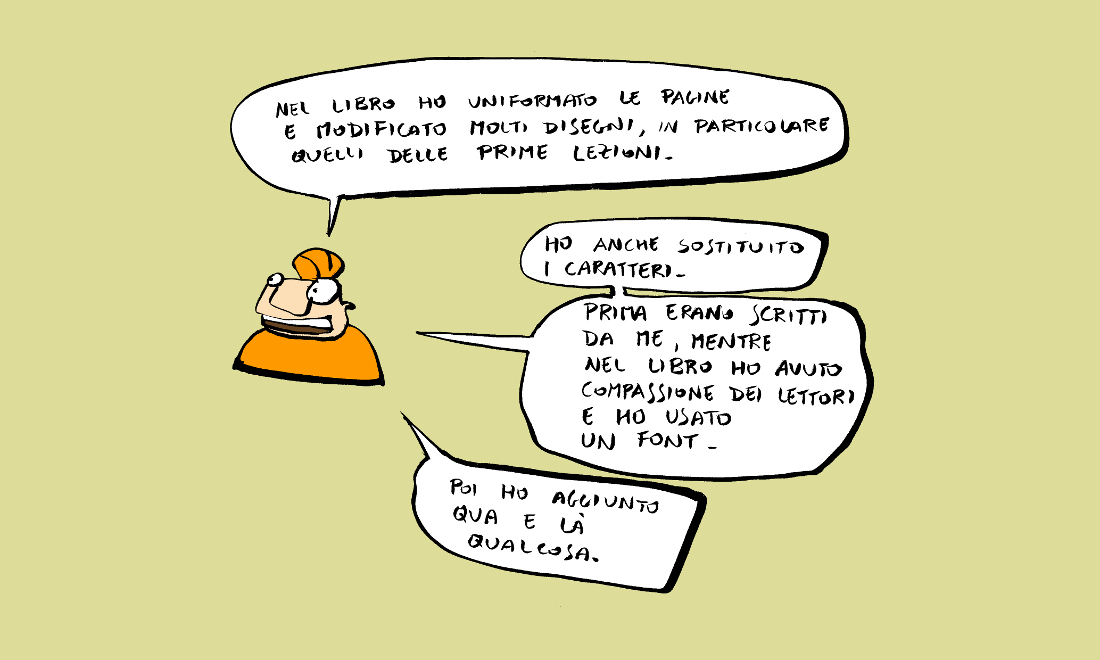 NEL LIBRO HO UNIFORMATO LE PAGINE
E MODIFICATO MOLTI DISEGNI, IN PARTICOLARE
QUELLI DELLE PRIME LEZIONI.
HO ANCHE SOSTITUITO
I CARATTERI.
PRIMA ERANO SCRITTI
DA ME, MENTRE
NEL LIBRO HO AVUTO
COMPASSIONE DEI LETTORI
E HO USATO
UN FONT.
POI HO AGGIUNTO
QUA E LÀ
QUALCOSA.